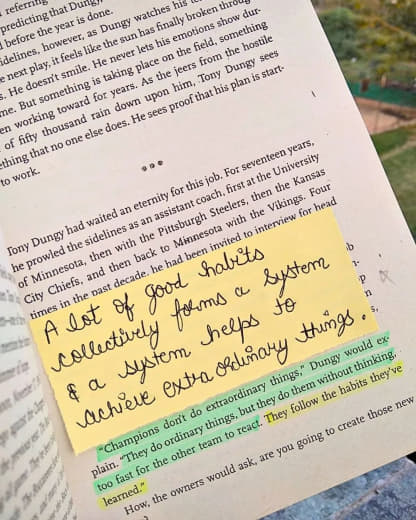 referring
predicting that Dungy
before the year is done.
idelines, however, as Dungy watches his
e next play, it feels like the sun has finally broken throug
s. He doesn't smile. He never lets his emotions show dur-
me. But something is taking place on the field, something
en working toward for years. As the jeers from the hostile
of fifty thousand rain down upon him, Tony Dungy sees
ething that no one else does. He sees proof that his plan is start-
to work.
Tony Dungy had waited an eternity for this job. For seventeen years,
he prowled the sidelines as an assistant coach, first at the University
of Minnesota, then with the Pittsburgh Steelers, then the Kansas
City Chiefs, and then back to Minnesota with the Vikings. Four
times in the past decade, he had been invited to interview for head
A lot of good habits
collectively forms a system
& a system helps to
achieve extraordinary things.
"Champions don't do extraordinary things," Dungy would ex-
plain. "They do ordinary things, but they do them without thinking,
too fast for the other team to react. They follow the habits they've
learned."
How, the owners would ask, are you going to create those new